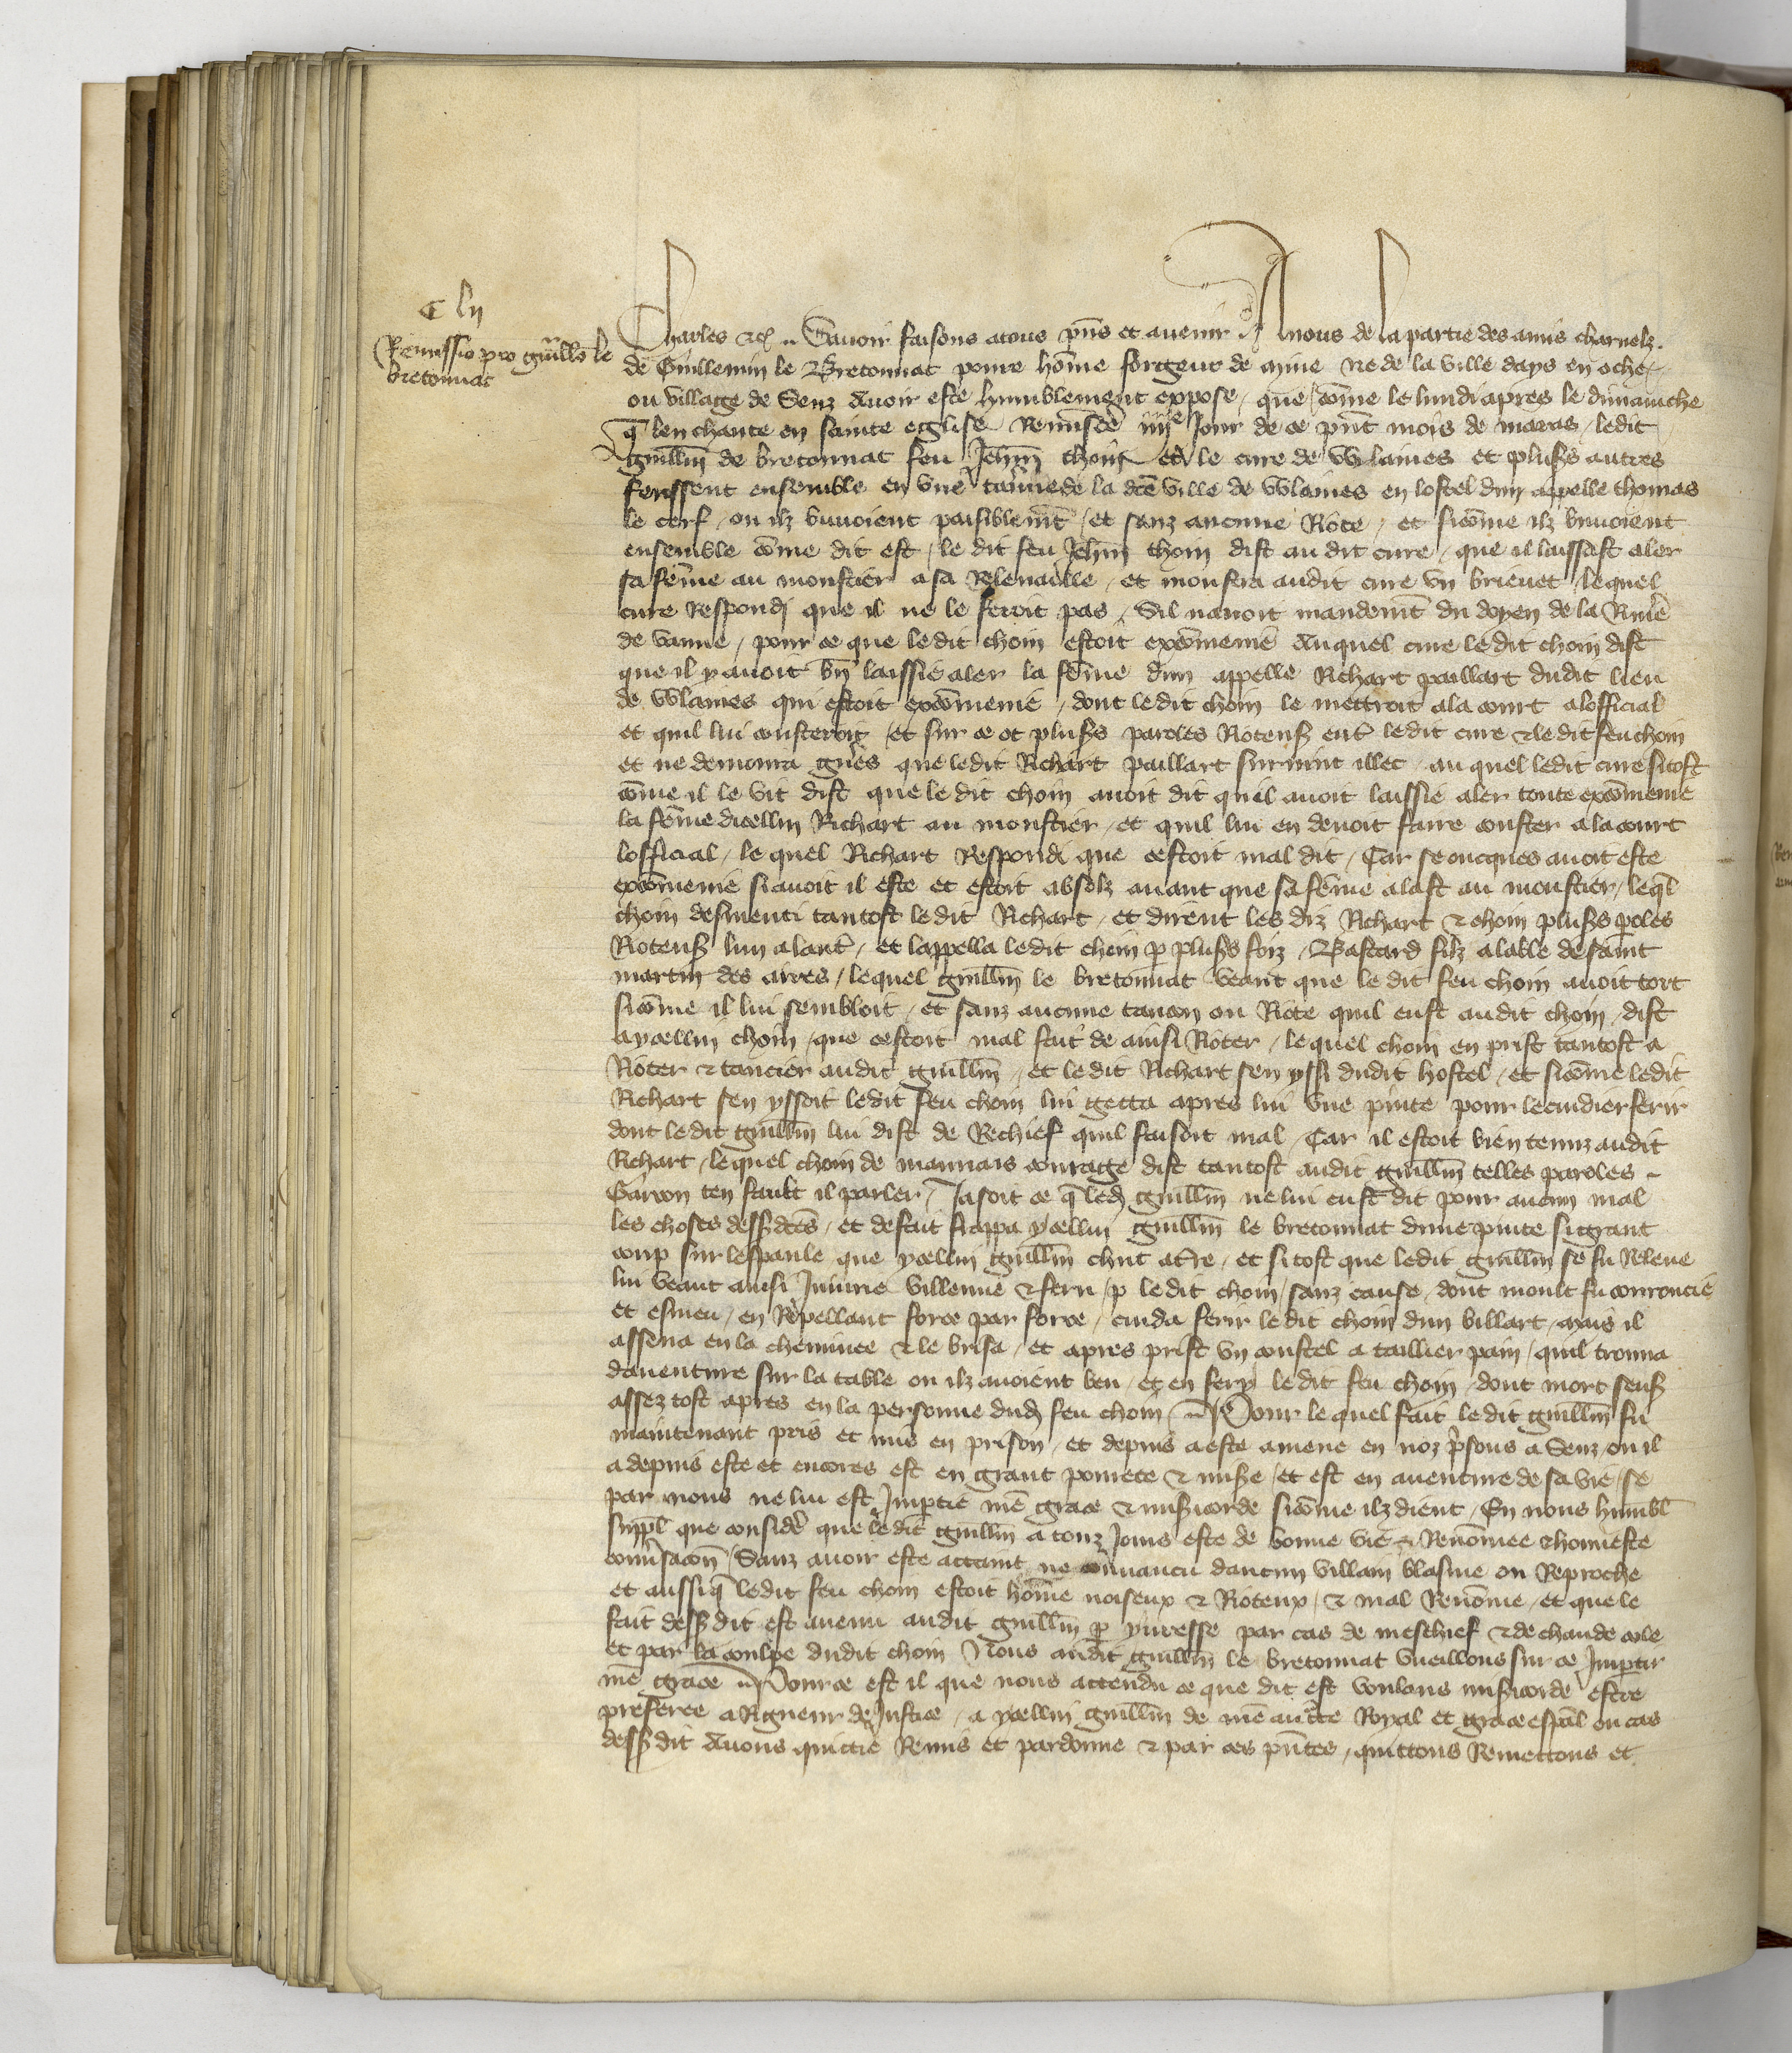 C lij
Remissio pro Guillo le
bretonnat
Charles etc. Savoir faisons a tous pns et avenir A nous de la partie des amis charnelz
de Guillemin le Bretonnat povre home forgeur de mine ne de la ville days en oche
ou village de Senz Avoir este humblement expose que come le lundi apres le dimanche
q len chante en sainte eglise Reminiscere iiije Jour de ce pnt mois de marcs ledit
guillm de bretonnat feu Jehan choin et le cure de Wlaines et pluss autres
fussent ensemble en une taverne de la dce ville de Wlaines en lostel dun appelle thomas
le cerf ou ilz buvoient paisiblemt et sanz aucune Riote et sicome ilz buvoient
ensemble come dit est le dit feu Jehan choin dist au dit cure que il laissast aler
sa feme au monstier a sa Relevaille et monstra audit cure un brievet lequel
cure Respondi que il ne le feroit pas Sil navoit mandemt du doyen de la Rivie
de vanne pour ce que ledit choin estoit excomenie Auquel cure ledit choin dist
que il y avoit bn laissie aler la feme dun appelle Richart paillart dudit lieu
de Wlaines qui estoit excomenie dont ledit choin le mettroit a la court a lofficial
et quil lui cousteroit et sur ce ot pluss paroles Roteuss ent ledit cure et ledit feu choin
et ne demoura gues que ledit Richart paillart survint illec au quel ledit cure si tost
come il le vit dist que le dit choin avoit dit quil avoit laissie aler toute excomenie
la feme dicellui Richart au monstier et quil lui en devoit faire couster a la court
lofficial le quel Richart Respondi que cestoit mal dit Car se oncques avoit este
excomenie si avoit il este et estoit absolz avant que sa feme alast au monstier leql
choin desmenti tantost le dit Richart et dirent les diz Richart et choin pluss poles
Roteuss lun a laut et lappella ledit choin p pluss foiz Bastard filz a labbe de saint
martin des aires lequel guillm le bretonnat veant que le dit feu choin avoit tort
sicome il lui sembloit et sanz aucune tancon ou Riote quil eust audit choin dist
a ycellui choin que cestoit mal fait de ainsi Rioter le quel choin en prist tantost a
Rioter et tancier audit guillm et ledit Richart sen yssi dudit hostel et sicome ledit
Richart sen yssoit ledit feu choin lui getta apres lui une pinte pour le cuidier ferir
dont ledit guillm lui dist de Rechief quil faisoit mal Car il estoit bien tenuz audit
Richart lequel choin de mauvais courage dist tantost audit guillm telles paroles
Garcon ten fault il parler Ja soit ce q led guillm ne lui eust dit pour aucun mal
les choses dessdces et de fait frappa ycellui guillm le bretonnat dune pinte si grant
coup sur lespaule que ycellui guillm chut a tre et si tost que ledit guillm se fu Releve
lui veant ainsi Jniurie villenne et feru p le dit choin sanz cause dont moult fu courroucie
et esmeu en Repellant force par force cuida ferir le dit choin dun billart mais il
assena en la cheminee et le brisa et apres prist un coustel a taillier pain quil trouva
daventure sur la table ou ilz avoient beu et en fery le dit feu choin dont mort sensu
assez tost apres en la personne dud feu choin Pour le quel fait le dit guillm fu
maintenant pris et mis en prison et depuis a este amene en noz psons a Senz ou il
a depuis este et encores est en grant povrete et mise et est en aventure de sa vie se
par nous ne lui est Jmptie nre grace et misicorde sicome ilz dient En nous humbl
suppl que conside que le dit guillm a touz Jours este de bonne vie et Renomee et honneste
conversacon Sanz avoir este attaint ne convaincu daucun villain blasme ou Reproche
et aussi q ledit feu choin estoit home noiseux et Rioteux et mal Renome et que le
fait dessdit est avenu audit guillm p yvresse par cas de meschief et de chaude cole
et par la coulpe dudit choin Nous audit guillm le bretonnat vueillons sur ce Jmptir
nre grace Pour ce est il que nous attendu ce que dit est voulans misicorde estre
preferee a Rigueur de Justice a ycellui guillm de nre aucte Royal et grace espal ou cas
dess dit Avons quictie Remis et pardonne et par ces pntes quittons Remettons et